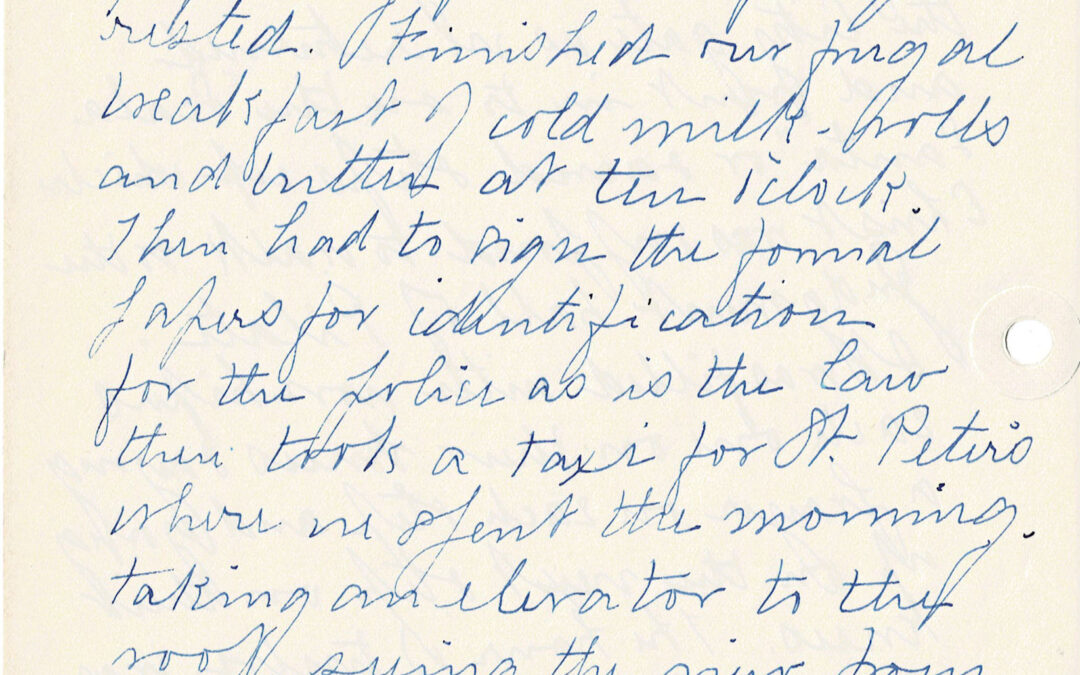 rested. Finished our frugal
breakfast of cold milk - rolls
and butter at ten o'clock.
Then had to sign the formal
papers for identification
for the police as is the law
then took a taxi for St. Peter's
where we spent the morning.
taking an elevator to the
roof seeing the view from